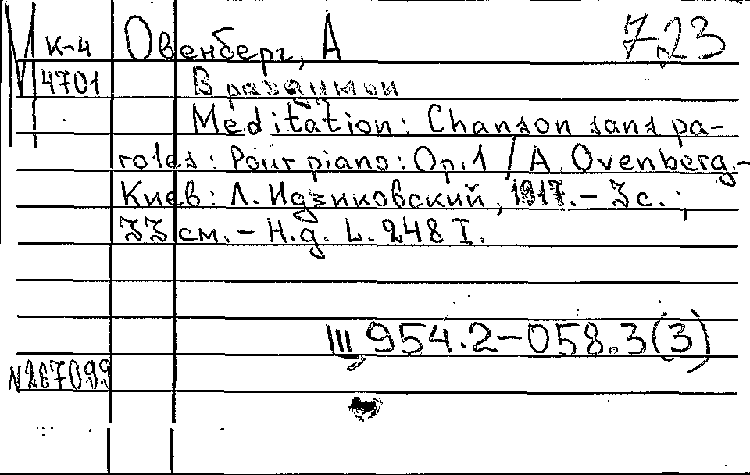 М к-4 Овенберг, А 723
4701 В раздумьи
Meditation: Chanson sans pa-
roles: Pour piano: Op.1 / A. Ovenberg.-
Киев: Л. Идзиковский, 1917.- 3 с.;
33 см.- Н.д. L. 248 I.
Ш, 954.2-058.3(3)
N267099